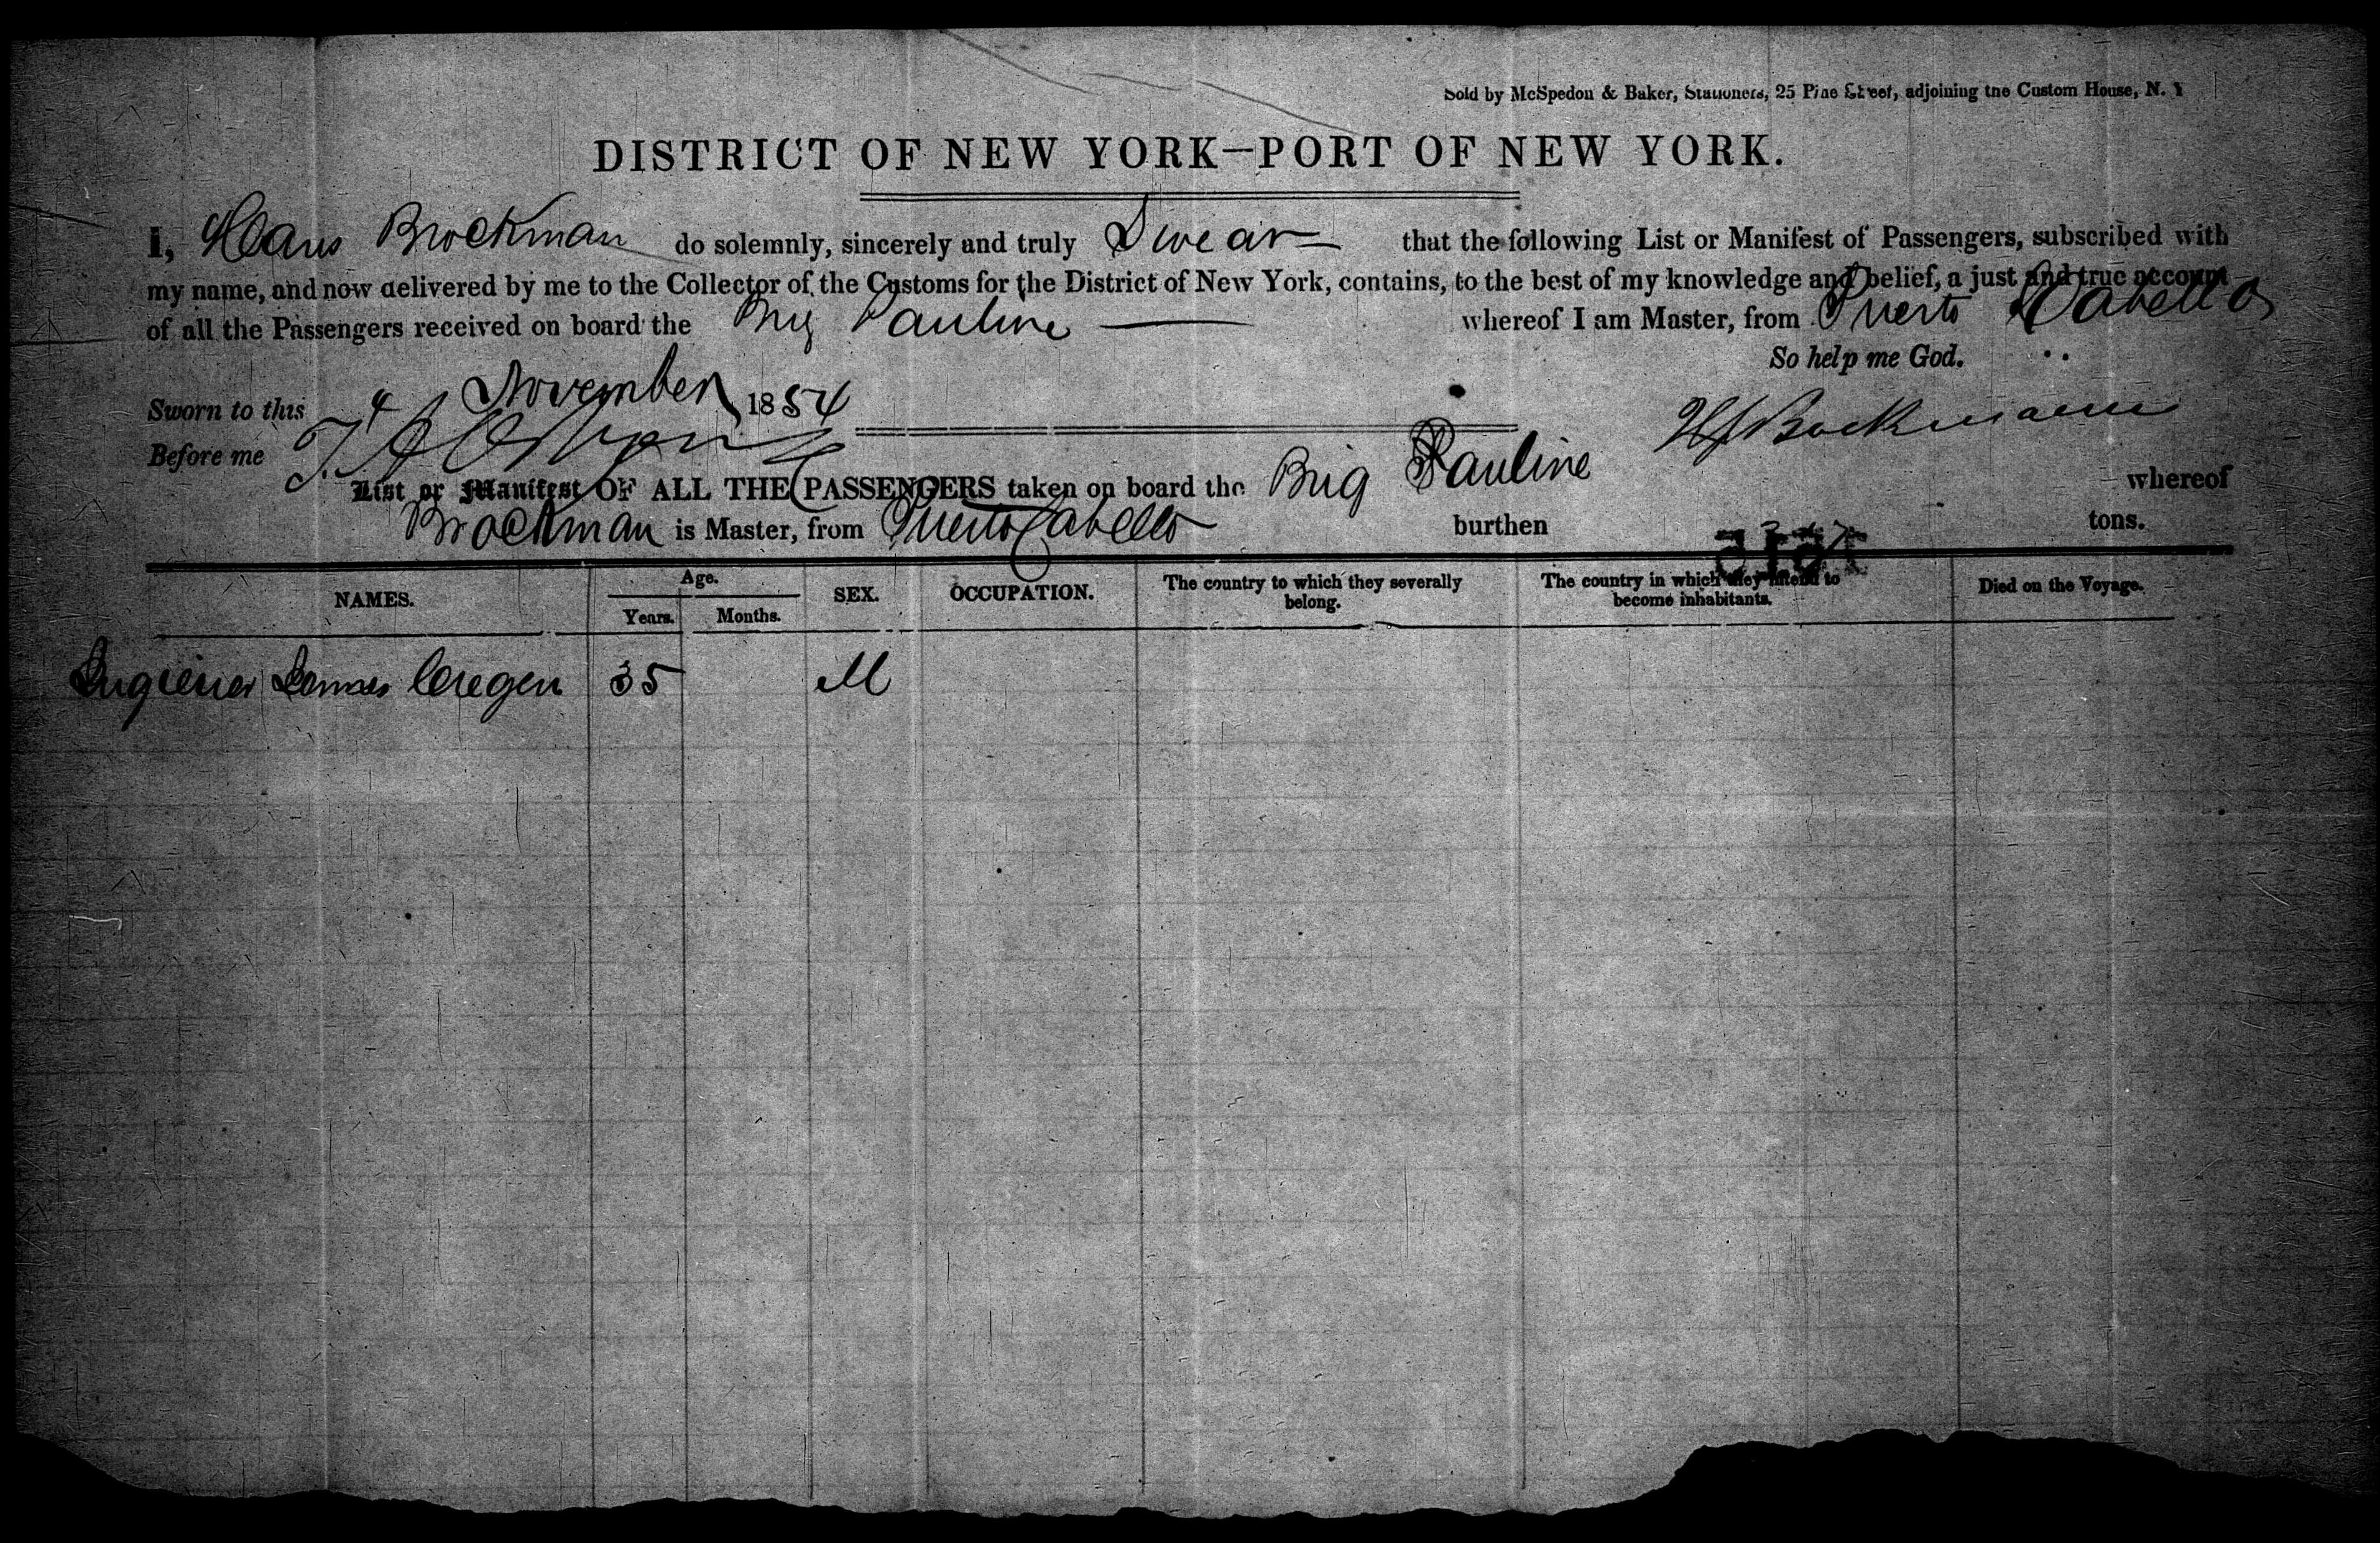 Sold by McSpedon & Baker, Stationers, 25 Pine Street, adjoining the Custom House, N. Y
DISTRICT OF NEW YORK—PORT OF NEW YORK.
I, Hans Brockman do solemnly, sincerely and truly Swear that the following List or Manifest of Passengers, subscribed with
my name, and now delivered by me to the Collector of the Customs for the District of New York, contains, to the best of my knowledge and belief, a just and true account
of all the Passengers received on board the Brig Pauline whereof I am Master, from Puerto Cabello
So help me God.
Sworn to this 4 November 1854
Before me
List or Manifest OF ALL THE PASSENGERS taken on board the Brig Pauline whereof
Brockman is Master, from Puerto Cabello burthen tons.
NAMES. Age. Years. Months. SEX. OCCUPATION. The country to which they severally belong. The country in which they intend to become inhabitants. Died on the Voyage.
35 M